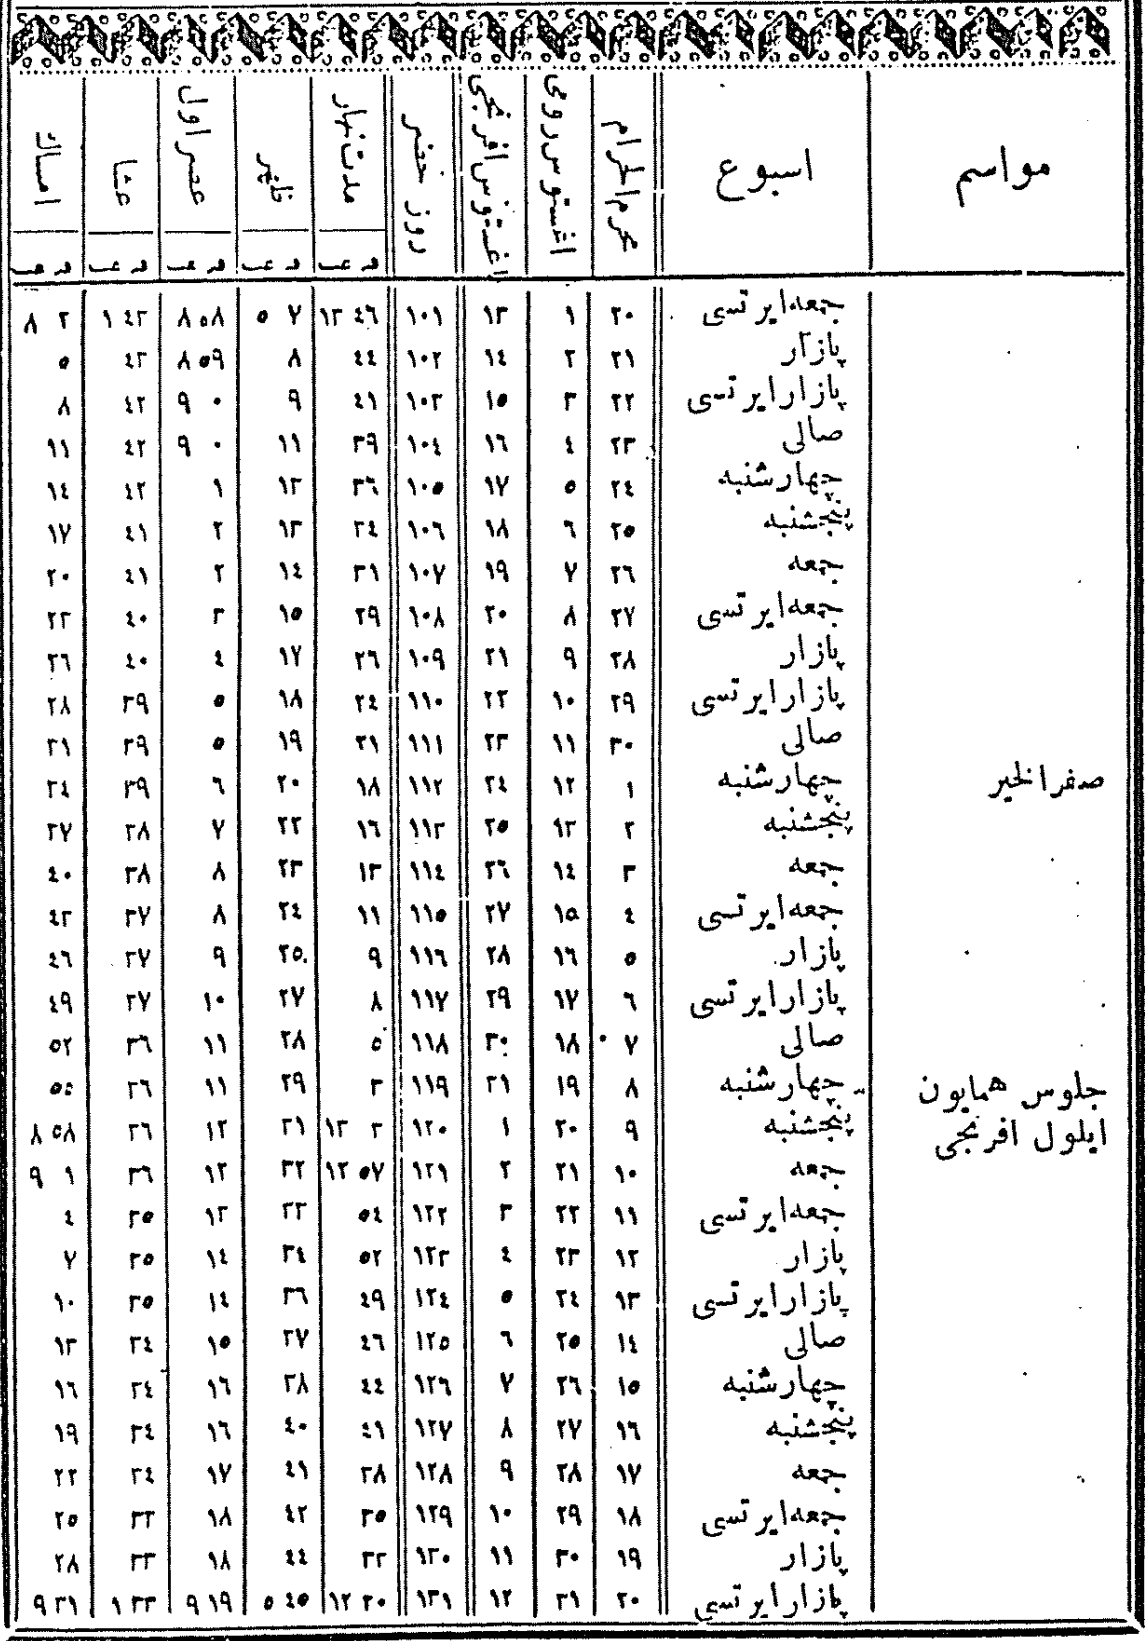 مواسم اسبوع محرم الحرام اغستوس رومی اغستوس افرنجی روز خضر مدت نهار ظهر عصر اول عشا امساك
قه عت قه عت قه عت قه عت قه عت
جمعه ایرتسی ٢٠ ١ ١٣ ١٠١ ٤٦ ١٣ ٧ ٥ ٥٨ ٨ ٤٣ ١ ٢ ٨
پازار ٢١ ٢ ١٤ ١٠٢ ٤٤ ٨ ٥٩ ٨ ٤٣ ٥
پازار ایرتسی ٢٢ ٣ ١٥ ١٠٣ ٤١ ٩ ٠ ٩ ٤٢ ٨
صالی ٢٣ ٤ ١٦ ١٠٤ ٣٩ ١١ ٠ ٩ ٤٢ ١١
چهارشنبه ٢٤ ٥ ١٧ ١٠٥ ٣٦ ١٢ ١ ٤٢ ١٤
پنجشنبه ٢٥ ٦ ١٨ ١٠٦ ٣٤ ١٣ ٢ ٤١ ١٧
جمعه ٢٦ ٧ ١٩ ١٠٧ ٣١ ١٤ ٢ ٤١ ٢٠
جمعه ایرتسی ٢٧ ٨ ٢٠ ١٠٨ ٢٩ ١٥ ٣ ٤٠ ٢٣
پازار ٢٨ ٩ ٢١ ١٠٩ ٢٦ ١٧ ٤ ٤٠ ٢٦
پازار ایرتسی ٢٩ ١٠ ٢٢ ١١٠ ٢٤ ١٨ ٥ ٣٩ ٢٨
صالی ٣٠ ١١ ٢٣ ١١١ ٢١ ١٩ ٥ ٣٩ ٣١
صفر الخیر چهارشنبه ١ ١٢ ٢٤ ١١٢ ١٨ ٢٠ ٦ ٣٩ ٣٤
پنجشنبه ٢ ١٣ ٢٥ ١١٣ ١٦ ٢٢ ٧ ٣٨ ٣٧
جمعه ٣ ١٤ ٢٦ ١١٤ ١٣ ٢٣ ٨ ٣٨ ٤٠
جمعه ایرتسی ٤ ١٥ ٢٧ ١١٥ ١١ ٢٤ ٨ ٣٧ ٤٣
پازار ٥ ١٦ ٢٨ ١١٦ ٩ ٢٥ ٩ ٣٧ ٤٦
پازار ایرتسی ٦ ١٧ ٢٩ ١١٧ ٨ ٢٧ ١٠ ٣٧ ٤٩
صالی ٧ ١٨ ٣٠ ١١٨ ٥ ٢٨ ١١ ٣٦ ٥٢
جلوس همایون چهارشنبه ٨ ١٩ ٣١ ١١٩ ٣ ٢٩ ١١ ٣٦ ٥٥
ایلول افرنجی پنجشنبه ٩ ٢٠ ١ ١٢٠ ٢ ١٣ ٣١ ١٢ ٣٦ ٥٨ ٨
جمعه ١٠ ٢١ ٢ ١٢١ ٥٧ ١٢ ٣٢ ١٢ ٣٦ ١ ٩
جمعه ایرتسی ١١ ٢٢ ٣ ١٢٢ ٥٤ ٣٣ ١٣ ٣٥ ٤
پازار ١٢ ٢٣ ٤ ١٢٣ ٥٢ ٣٤ ١٤ ٣٥ ٧
پازار ایرتسی ١٣ ٢٤ ٥ ١٢٤ ٤٩ ٣٦ ١٤ ٣٥ ١٠
صالی ١٤ ٢٥ ٦ ١٢٥ ٤٦ ٣٧ ١٥ ٣٤ ١٣
چهارشنبه ١٥ ٢٦ ٧ ١٢٦ ٤٤ ٣٨ ١٦ ٣٤ ١٦
پنجشنبه ١٦ ٢٧ ٨ ١٢٧ ٤١ ٤٠ ١٦ ٣٤ ١٩
جمعه ١٧ ٢٨ ٩ ١٢٨ ٣٨ ٤١ ١٧ ٣٤ ٢٢
جمعه ایرتسی ١٨ ٢٩ ١٠ ١٢٩ ٣٥ ٤٢ ١٨ ٣٣ ٢٥
پازار ١٩ ٣٠ ١١ ١٣٠ ٣٣ ٤٤ ١٨ ٣٣ ٢٨
پازار ایرتسی ٢٠ ٣١ ١٢ ١٣١ ٣٠ ١٢ ٤٥ ٥ ١٩ ٩ ٣٣ ١ ٣١ ٩